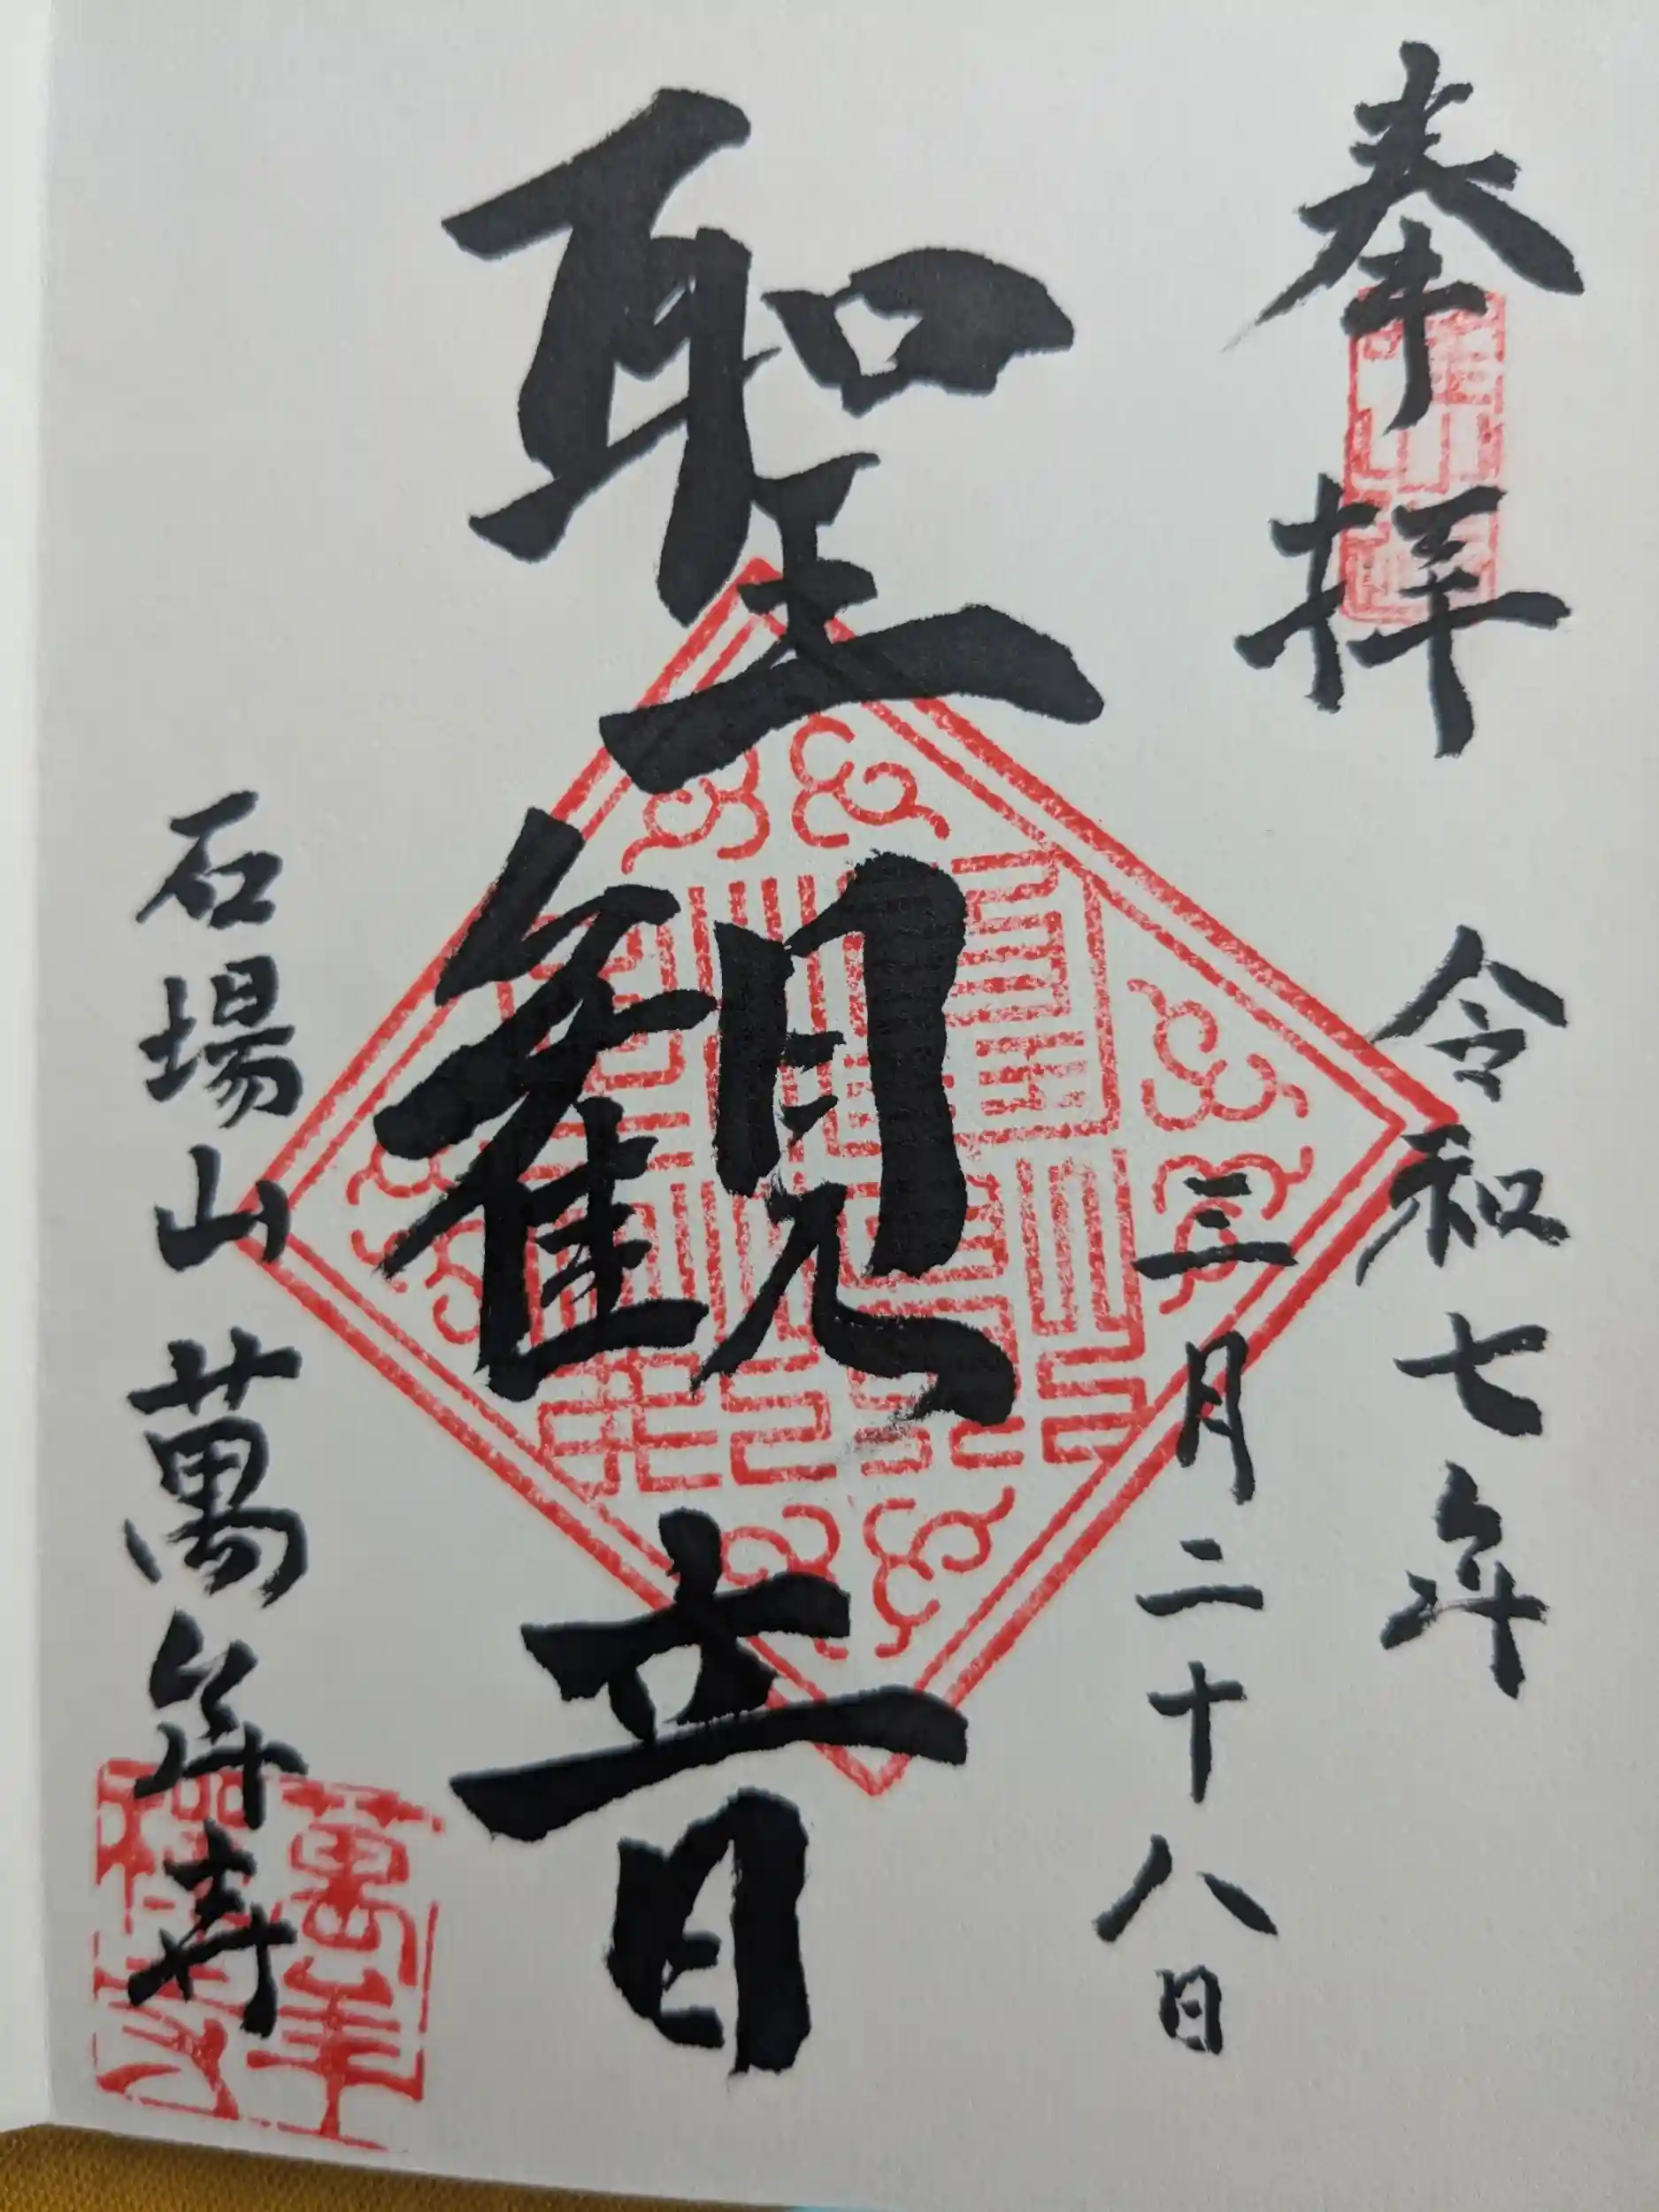 奉拝
令和七年
三月二十八日
聖観音
石場山萬年寺
萬年
禅寺